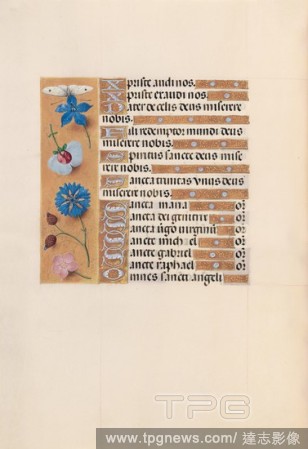 Xpriste audi nos.
Xpriste exaudi nos.
Pater de celis deus miserere
nobis.
Fili redemptor mundi deus
miserere nobis.
Spiritus sancte deus mise
rere nobis.
Sancta trinitas unus deus
miserere nobis.
Sancta maria or
Sancta dei genitrix or
Sancta virgo virginum or
Sancte michael or
Sancte gabriel or
Sancte raphael or
Omnes sancti angeli
TPG
www.tpgnews.com/ 達志影像